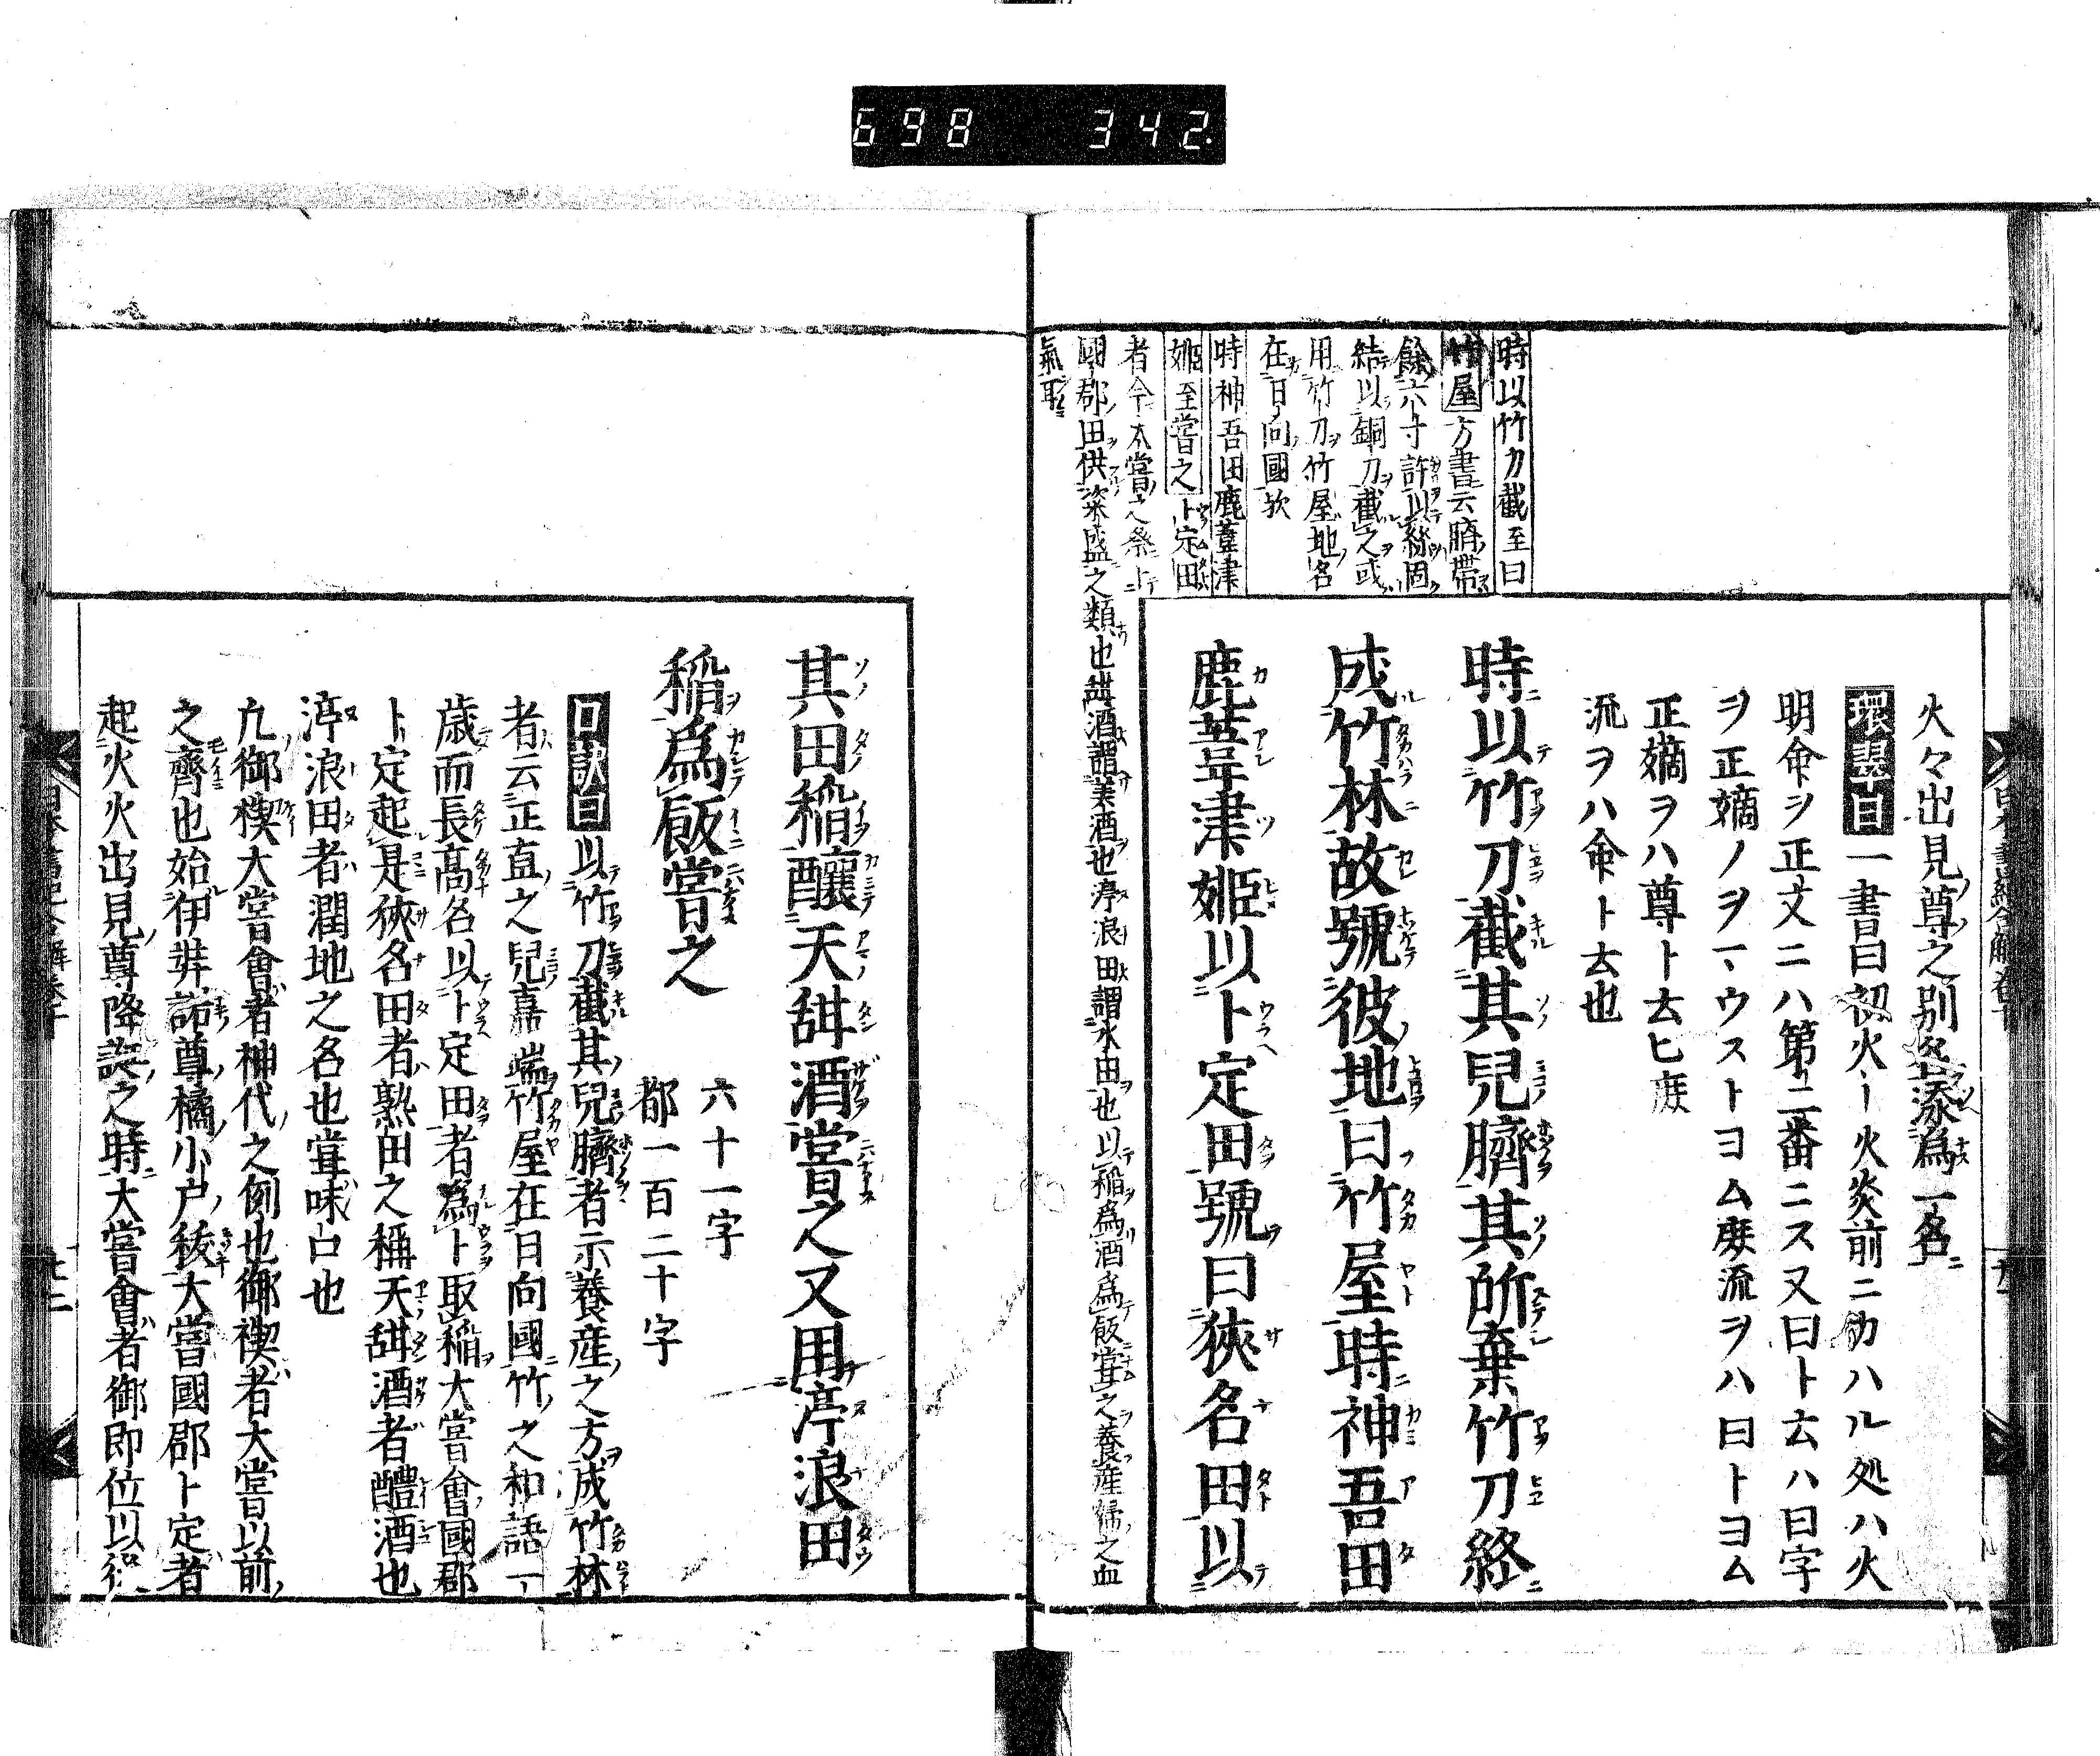 698 342
時以竹刀截至曰
竹屋方書云臍帶
餘六寸許以絲固
結以銅刀截之或
用竹刀竹屋地名
在日向國欤
時神吾田鹿葦津
姫至嘗之卜定田
者今大嘗之祭卜
國郡田供粢盛之類也甜酒謂美酒也渟浪田謂水田也以稲為酒為飯嘗之養産婦之血
氣耶
火々出見尊之别名添為一名
環翠曰一書曰初火ー火炎前ニ加ハル処ハ火
明命ヲ正文ニハ第三番ニス又曰ト云ハ曰字
ヲ正嫡ノヲマウストヨム庶流ヲハ曰トヨム
正嫡ヲハ尊ト云ヒ庶
流ヲハ命ト云也
時以竹刀截其兒臍其所棄竹刀終
成竹林故號彼地曰竹屋時神吾田
鹿葦津姬以卜定田號曰狹名田以
其田稲釀天甜酒嘗之又用渟浪田
稲為飯嘗之
六十一字
都一百二十字
口訣曰以竹刀截其兒臍者示養産之方成竹林
者云正直之兒嘉端竹屋在日向國竹之和語一
歳而長高名以卜定田者為卜取稲大嘗會國郡
卜定起是狹名田者熟田之稱天甜酒者醴酒也
渟浪田者潤地之名也嘗味口也
凢御禊大嘗會者神代之例也御禊者大嘗以前
之齊也始伊弉諾尊橘小戸秡大嘗國郡卜定者
起火火出見尊降誕之時大嘗會者御即位以後